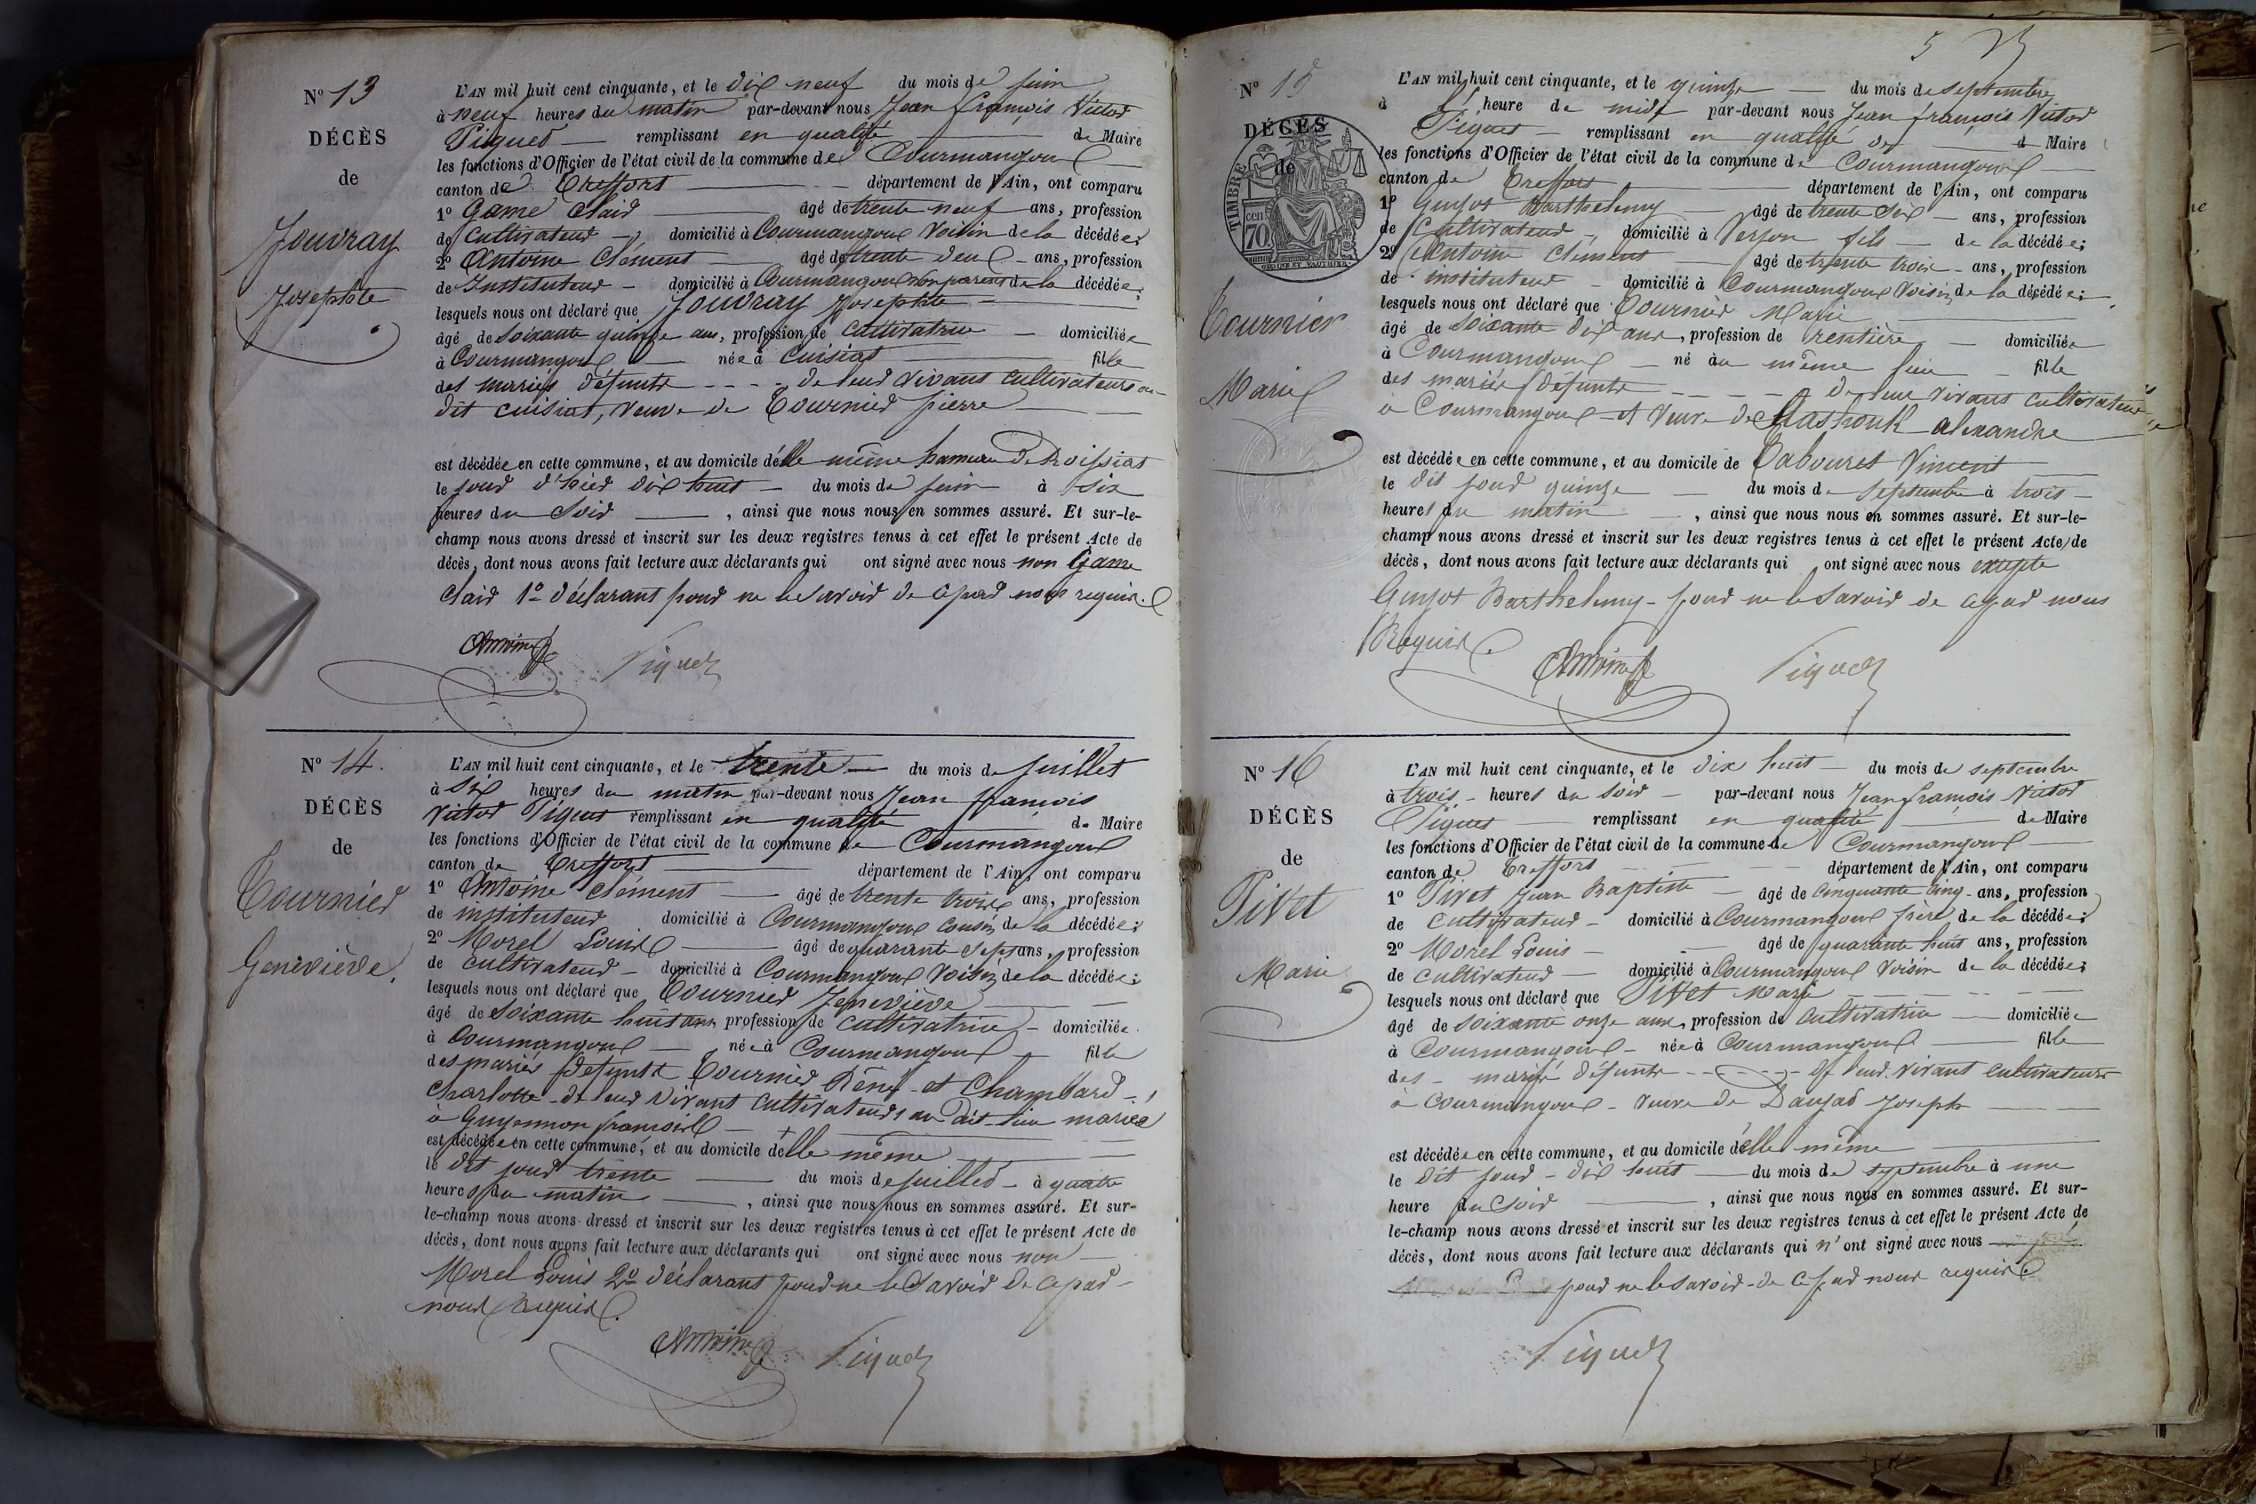 N° 13
DÉCÈS
de
Jouvray
Josephte
L'AN mil huit cent cinquante, et le dix neuf du mois de juin
à neuf heures du matin par-devant nous Jean françois Victor
Piquet remplissant en qualité de Maire
les fonctions d'Officier de l'état civil de la commune de Courmangoux
canton de Treffort département de l'Ain, ont comparu
1° Game Claid âgé de trente neuf ans, profession
de Cultivateur domicilié à Courmangoux Voisin de la décédée;
2° Antoine Clément âgé de trente deux ans, profession
de Instituteur domicilié à Courmangoux non parent de la décédée;
lesquels nous ont déclaré que Jouvray Josephte
âgé de soixante quinze ans, profession de cultivatrice domiciliée
à Courmangoux née à Cuisiat fille
des mariés défunts - - - - de leur vivant cultivateurs au
dit cuisiat, veuve de Tournier pierre
est décédée en cette commune, et au domicile d'elle même hameau de Roissiat
le jour d'hier dix huit du mois de juin à six
heures du soir, ainsi que nous nous en sommes assuré. Et sur-le-
champ nous avons dressé et inscrit sur les deux registres tenus à cet effet le présent Acte de
décès, dont nous avons fait lecture aux déclarants qui ont signé avec nous non Game
Claid 1° déclarant pour ne le savoir de ce par nous requis.
Antoine Piquet
N° 14.
DÉCÈS
de
Tournier
Geneviève.
L'AN mil huit cent cinquante, et le trente du mois de juillet
à six heures du matin par-devant nous Jean françois
Victor Piquet remplissant en qualité de Maire
les fonctions d'Officier de l'état civil de la commune de Courmangoux
canton de Treffort département de l'Ain, ont comparu
1° Antoine Clément âgé de trente trois ans, profession
de instituteur domicilié à Courmangoux Cousin de la décédée;
2° Morel Louis âgé de quarante sept ans, profession
de cultivateur domicilié à Courmangoux voisin de la décédée;
lesquels nous ont déclaré que Tournier Jeneviève
âgé de soixante huit ans profession de cultivatrice domiciliée
à Courmangoux née à Courmangoux fille
des mariés defunts Tournier Réné et Chambard
Charlotte de leur vivant cultivateurs au dit lieu mariée
à Guyennon françois
est décédée en cette commune, et au domicile d'elle même
le dit jour trente du mois de juillet à quatre
heures du matin, ainsi que nous nous en sommes assuré. Et sur-
le-champ nous avons dressé et inscrit sur les deux registres tenus à cet effet le présent Acte de
décès, dont nous avons fait lecture aux déclarants qui ont signé avec nous non
Morel Louis 2° déclarant pour ne le savoir de ce par
nous requis.
Antoine Piquet
5
N° 15
DÉCÈS
de
TIMBRE
cen 70
Tournier
Marie
L'AN mil huit cent cinquante, et le quinze du mois de septembre
à l'heure de midi par-devant nous Jean françois Victor
Piquet remplissant en qualité de Maire
les fonctions d'Officier de l'état civil de la commune de Courmangoux
canton de Treffort département de l'Ain, ont comparu
1° Guyot Barthelemy âgé de trente six ans, profession
de Cultivateur domicilié à Verjon fils de la décédée;
2° Antoine Clément âgé de trente trois ans, profession
de instituteur domicilié à Courmangoux Voisin de la décédée;
lesquels nous ont déclaré que Tournier Marie
âgé de soixante dix ans, profession de rentière domiciliée
à Courmangoux né au même lieu fille
des mariés défunts - - - - de leur vivant cultivateurs
à Courmangoux et veuve de alexandre
est décédée en cette commune, et au domicile de Tabouret Vincent
le dit jour quinze du mois de septembre à trois
heures du matin, ainsi que nous nous en sommes assuré. Et sur-le-
champ nous avons dressé et inscrit sur les deux registres tenus à cet effet le présent Acte de
décès, dont nous avons fait lecture aux déclarants qui ont signé avec nous excepte
Guyot Barthelemy pour ne le savoir de ce par nous
Requis.
Antoine Piquet
N° 16
DÉCÈS
de
Pivet
Marie
L'AN mil huit cent cinquante, et le dix huit du mois de septembre
à trois heures du soir par-devant nous Jean françois Victor
Piquet remplissant en qualité de Maire
les fonctions d'Officier de l'état civil de la commune de Courmangoux
canton de Treffort département de l'Ain, ont comparu
1° Pivet Jean Baptiste âgé de cinquante cinq ans, profession
de cultivateur domicilié à Courmangoux frère de la décédée;
2° Morel Louis âgé de quarante huit ans, profession
de cultivateur domicilié à Courmangoux Voisin de la décédée;
lesquels nous ont déclaré que Pivet Marie
âgé de soixante onze ans, profession de cultivatrice domiciliée
à Courmangoux née à Courmangoux fille
des mariés défunts - - - - de leur vivant cultivateurs
à Courmangoux veuve de Daujat Joseph
est décédée en cette commune, et au domicile d'elle même
le dit jour dix huit du mois de septembre à une
heure du soir, ainsi que nous nous en sommes assuré. Et sur-
le-champ nous avons dressé et inscrit sur les deux registres tenus à cet effet le présent Acte de
décès, dont nous avons fait lecture aux déclarants qui n'ont signé avec nous
pour ne le savoir de ce par nous requis.
Piquet